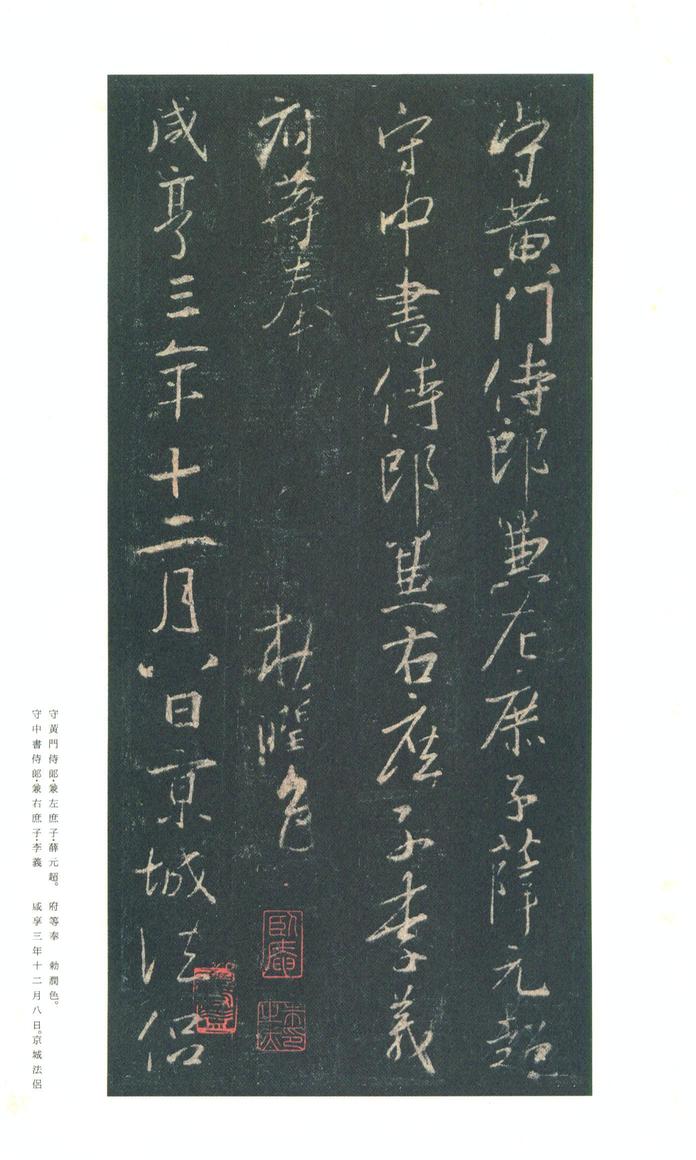 守黃門侍郎兼左庶子薛元超
守中書侍郎兼右庶子李義
府等奉 勅潤色
咸亨三年十二月八日京城法侶
臥庵
守黃門侍郎·兼左庶子·薛元超。 府等奉 勅潤色。
守中書侍郎·兼右庶子·李義 咸享三年十二月八日。京城法侶